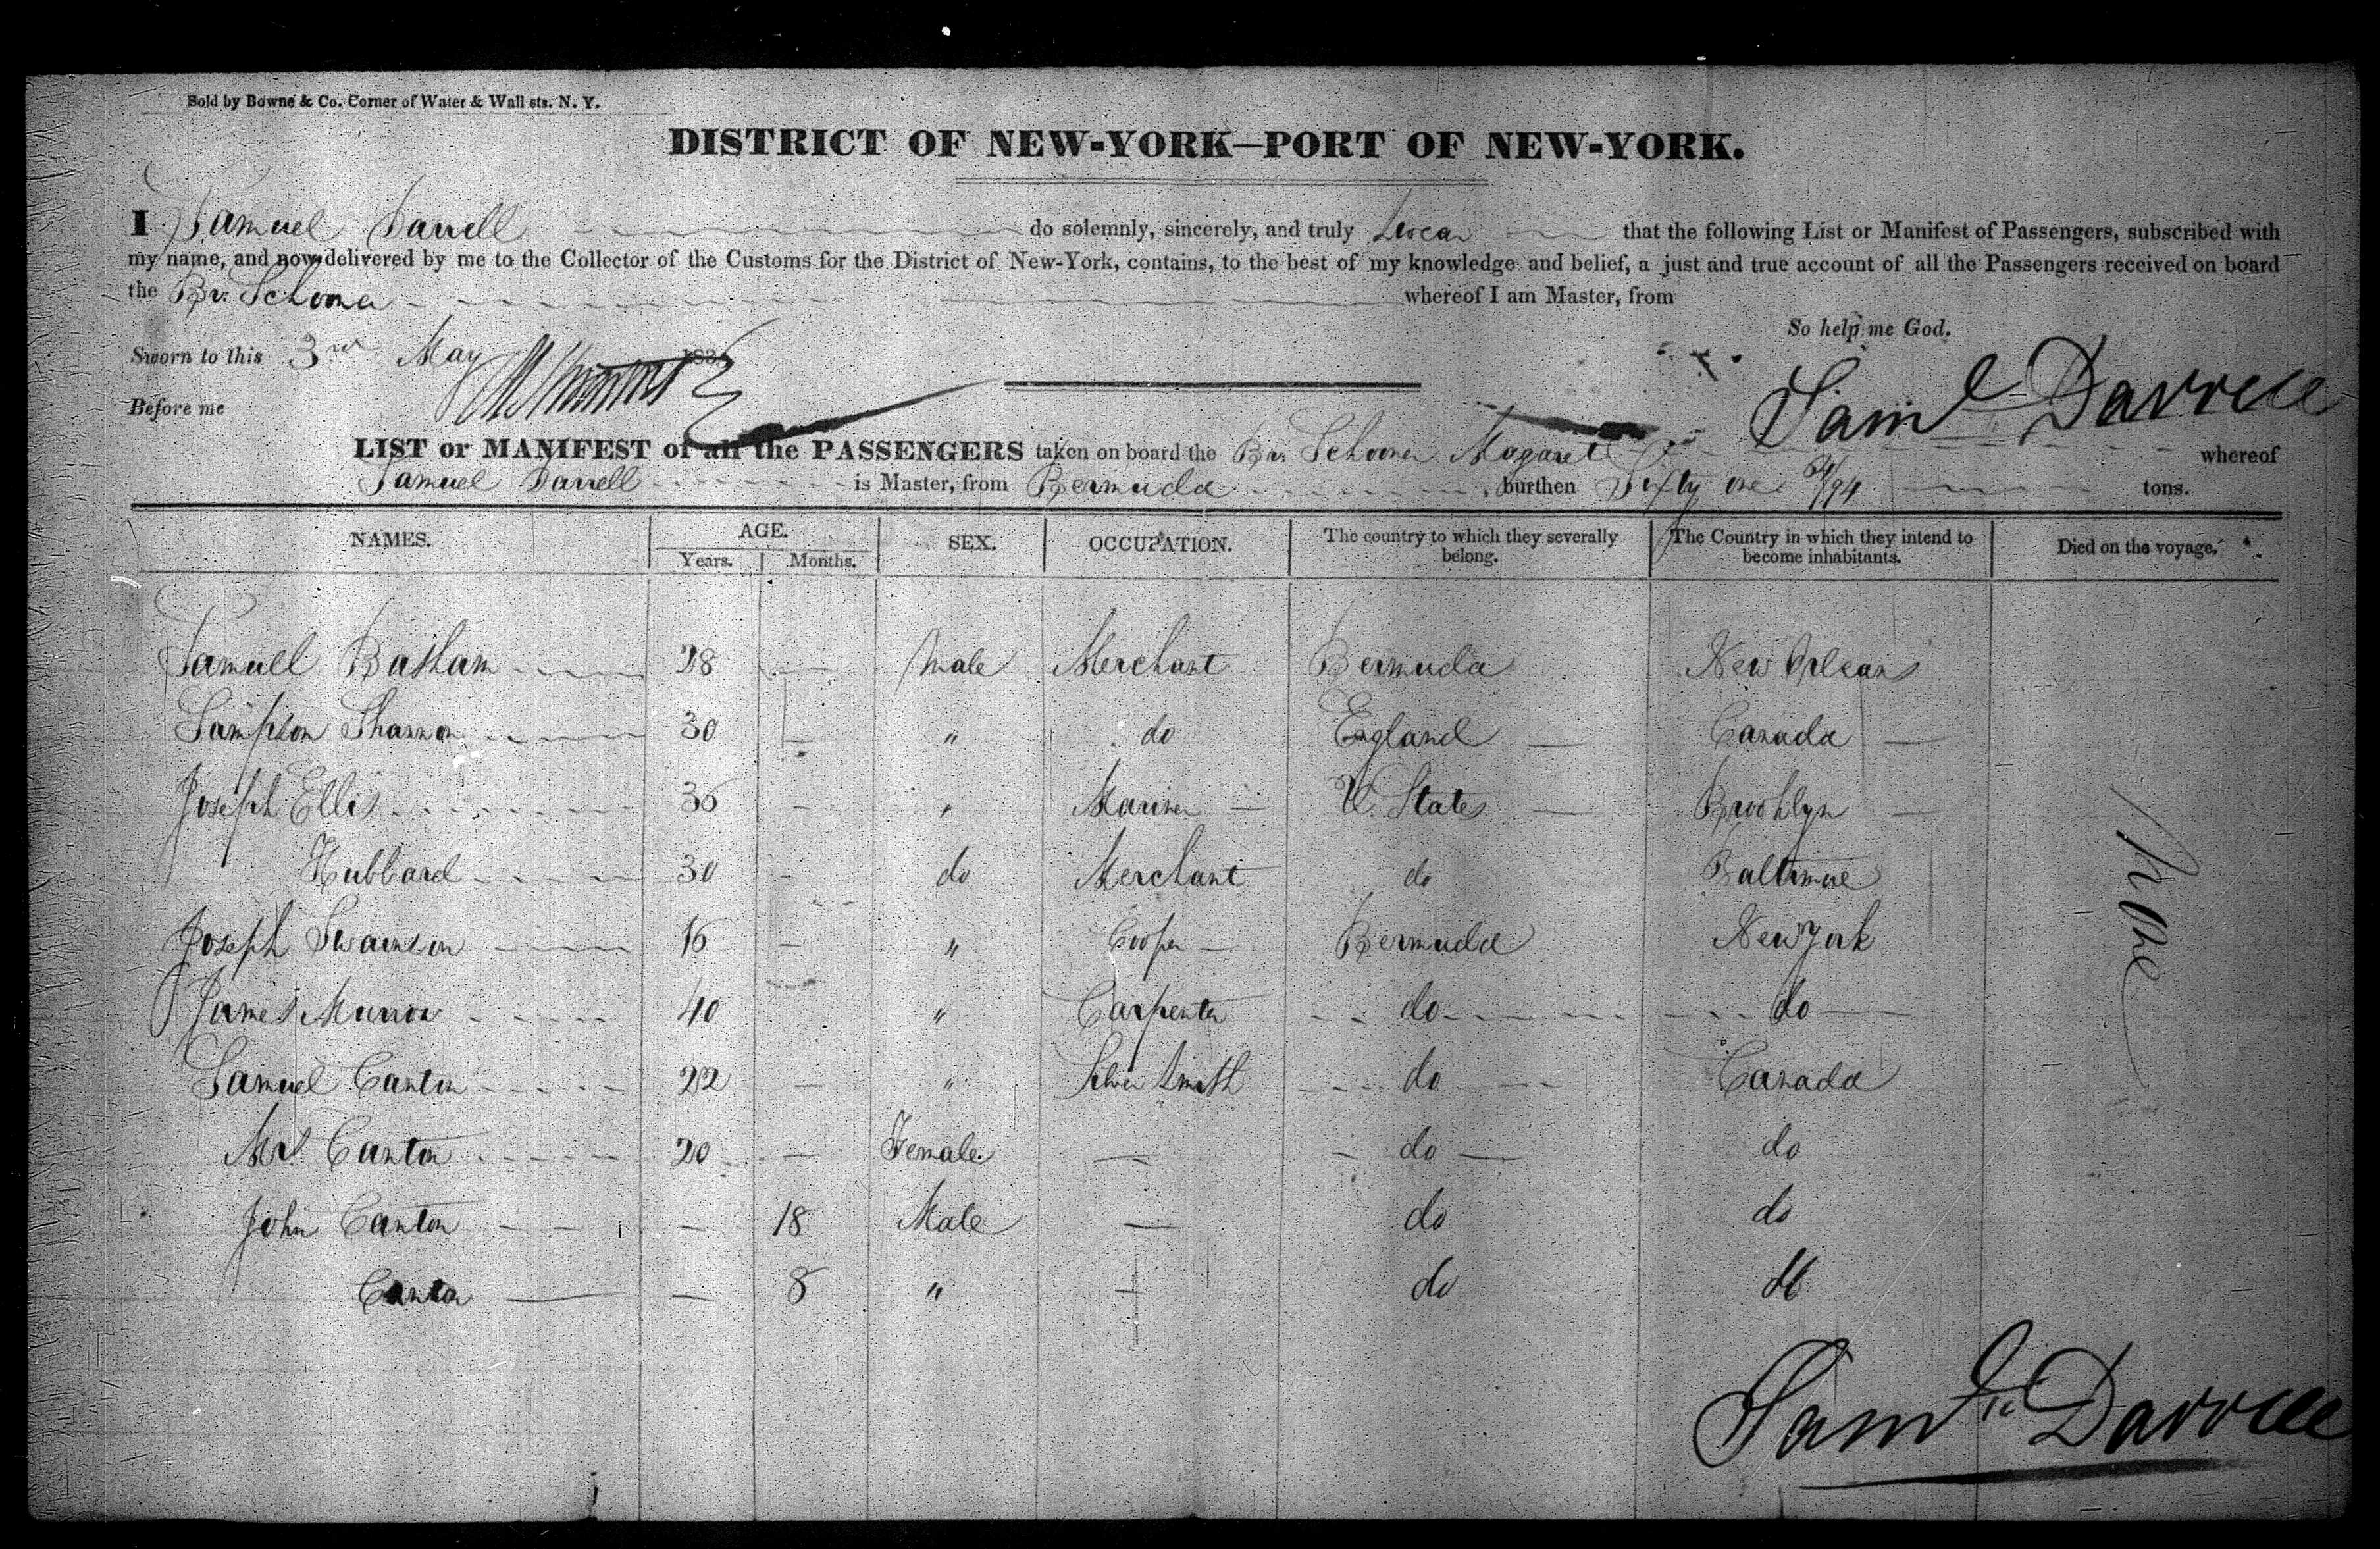 Sold by Bowne & Co. Corner of Water & Wall sts. N. Y.
DISTRICT OF NEW-YORK—PORT OF NEW-YORK.
I Samuel Darrell do solemnly, sincerely, and truly Swear that the following List or Manifest of Passengers, subscribed with
my name, and now delivered by me to the Collector of the Customs for the District of New-York, contains, to the best of my knowledge and belief, a just and true account of all the Passengers received on board
the Br. Schooner whereof I am Master, from
So help me God.
Sworn to this 3rd May 183
Before me
Saml Darrell
LIST or MANIFEST of all the PASSENGERS taken on board the Br. Schooner Magaret whereof
Samuel Darrell is Master, from Bermuda , burthen Sixty one /94 tons.
NAMES. AGE. SEX. OCCUPATION. The country to which they severally belong. The Country in which they intend to become inhabitants. Died on the voyage.
Years. Months.
Samuel Basham 28 — Male Merchant Bermuda New Orleans
Sampson Shannon 30 — " do England — Canada —
Joseph Ellis 36 — " Mariner — U. States — Brooklyn —
Hubbard 30 — do Merchant do Baltimore
Joseph Swainson 16 — " Cooper — Bermuda New York
James Marrow 40 " Carpenter do do
Samuel Canton 22 — " Silver Smith do Canada
Mrs Canton 20 — Female — do — do
John Canton — 18 Male — do do
Canton — 8 " — do do
None
Saml Darrell